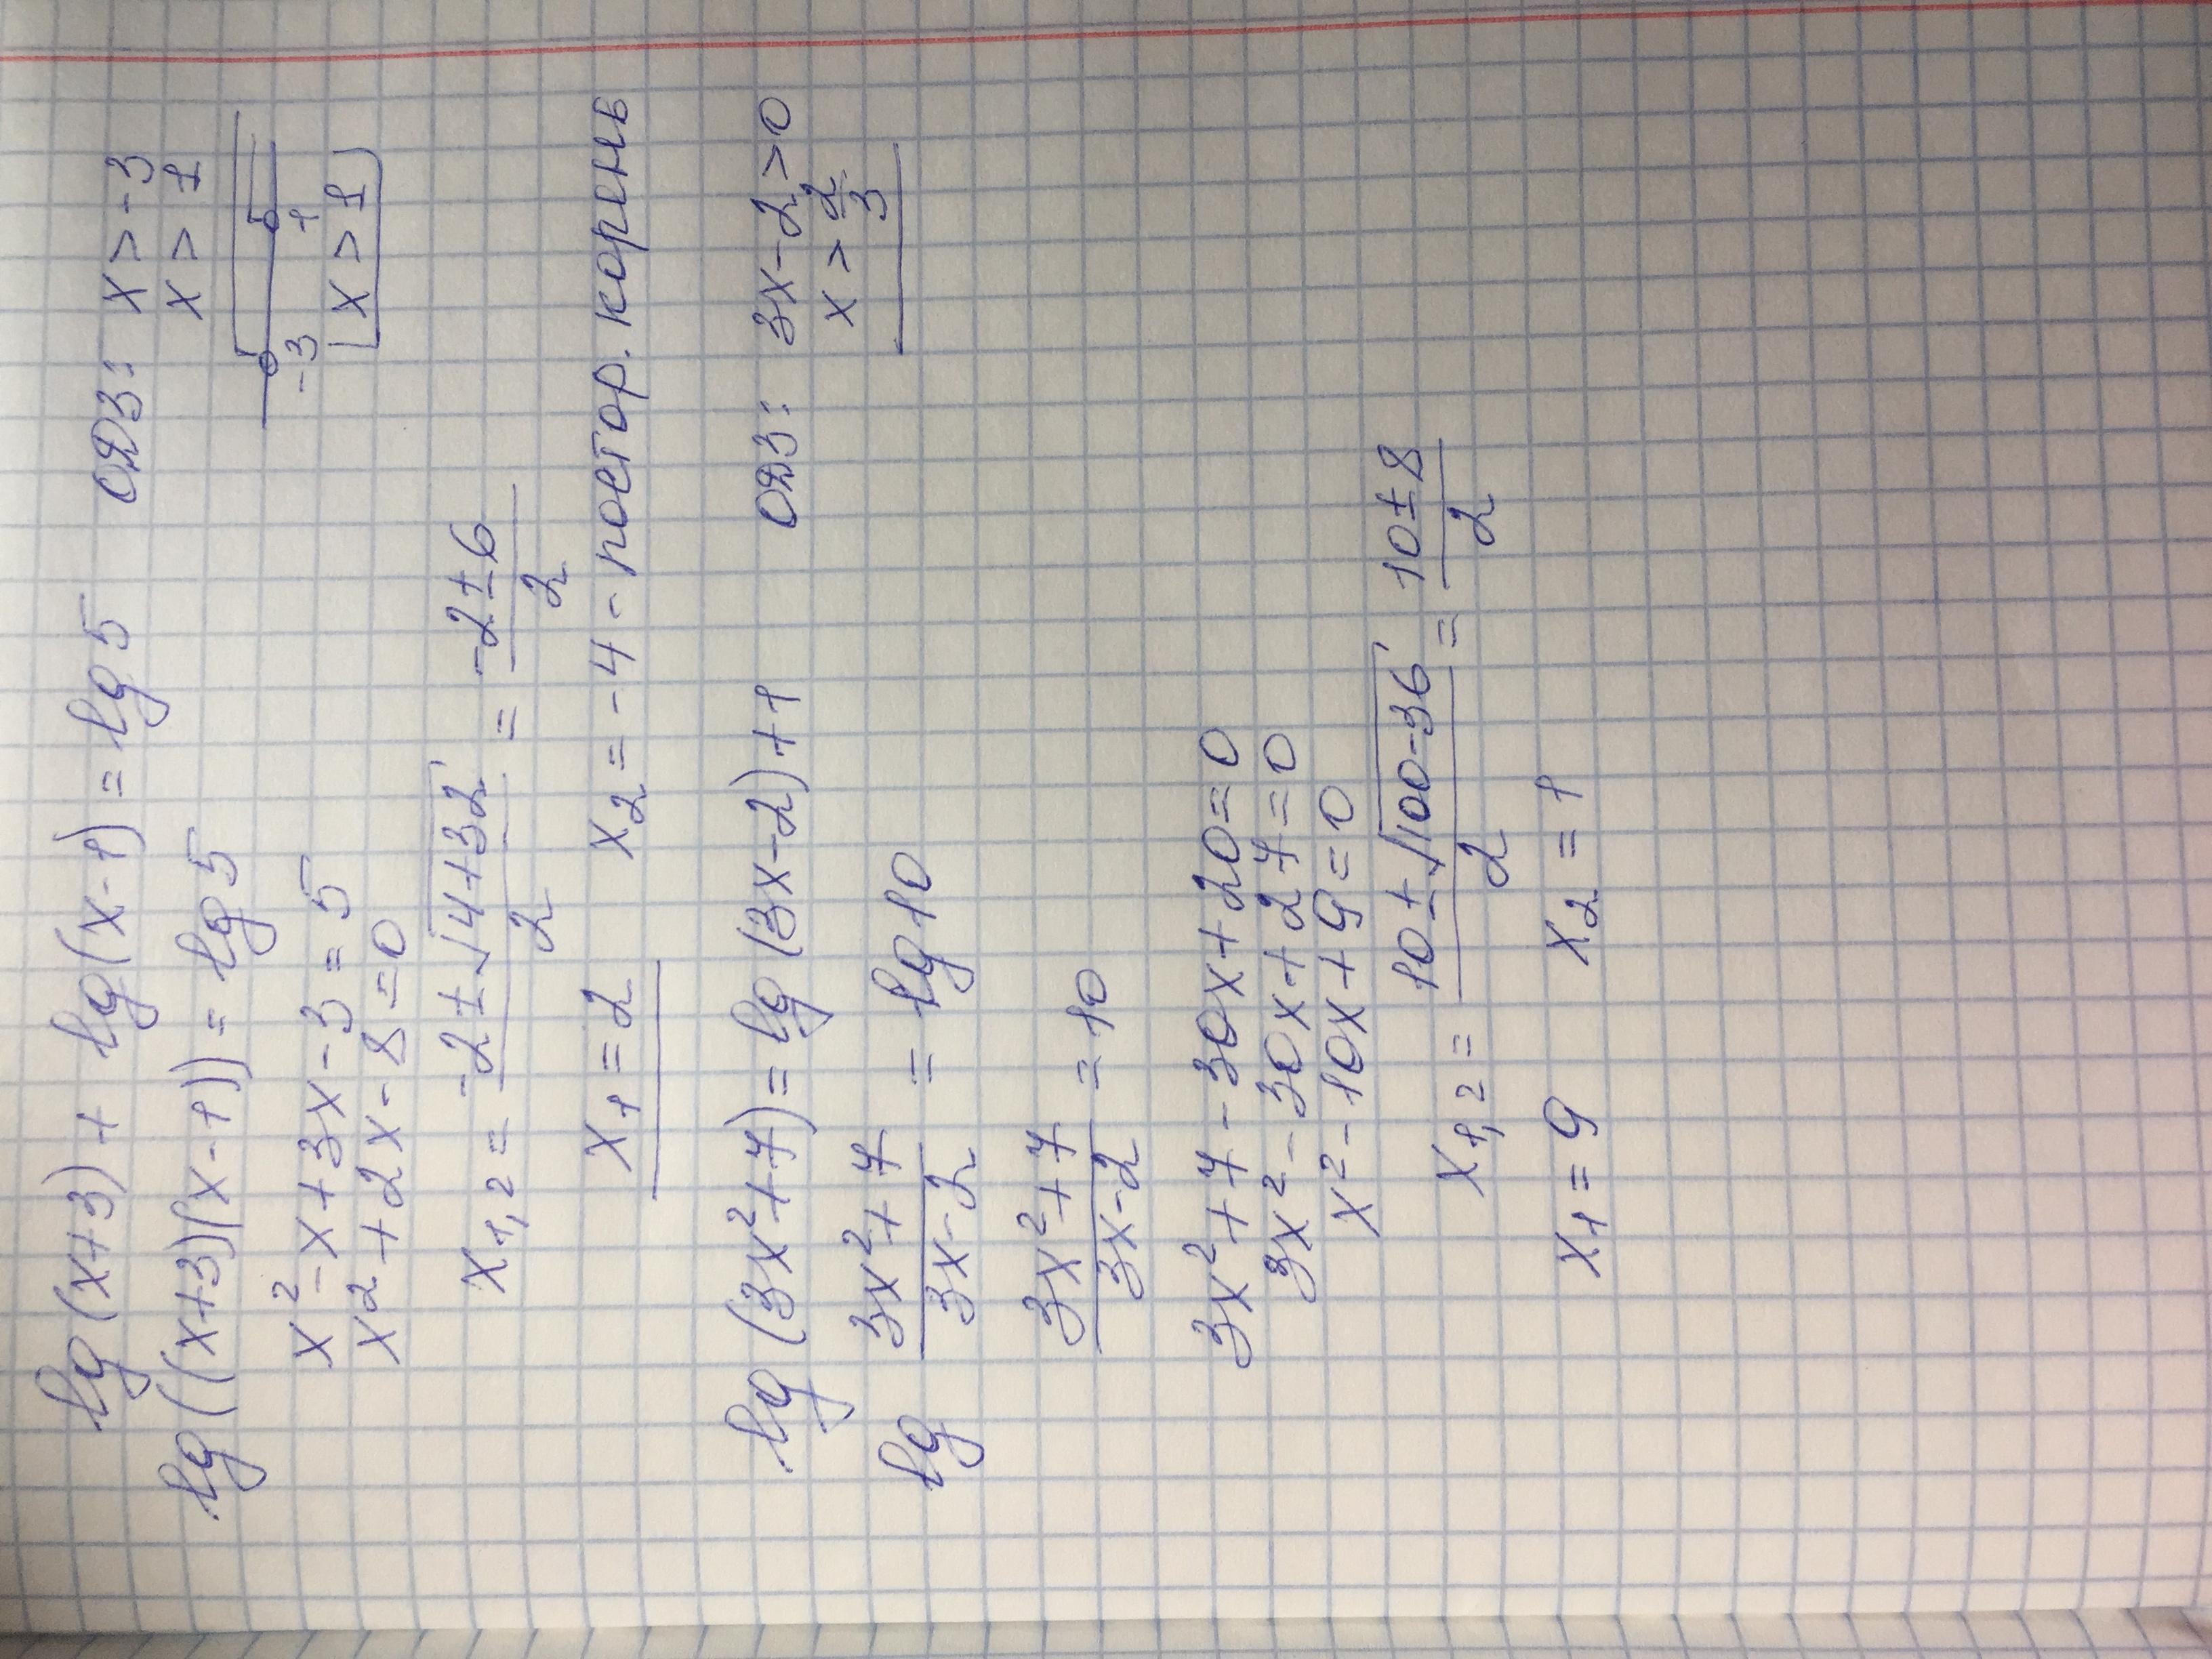 lg(x+3) + lg(x-1) = lg5 ОДЗ: x > -3
lg((x+3)(x-1)) = lg5 x > 1
-3 1
x²-x+3x-3=5 x > 1
x²+2x-8=0
x1,2 = (-2±√(4+32))/2 = (-2±6)/2
x1=2 x2=-4 - постор. корень
lg(3x²+7)=lg(3x-2)+1 ОДЗ: 3x-2>0
lg (3x²+7)/(3x-2) = lg10 x > 2/3
(3x²+7)/(3x-2) = 10
3x²+7-30x+20=0
3x²-30x+27=0
x²-10x+9=0
x1,2 = (10±√(100-36))/2 = (10±8)/2
x1=9 x2=1